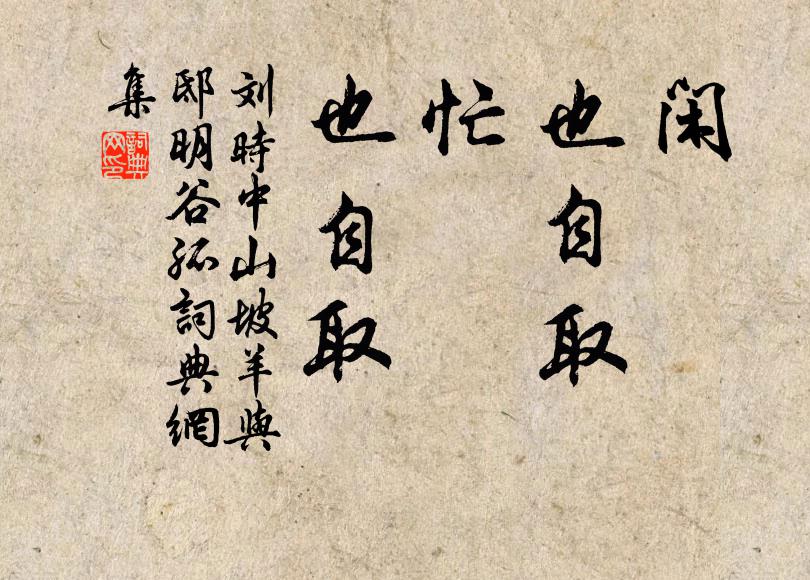 闲
也自取
忙
也自取
刘時中山坡羊與
邸明谷孤詞典網
集
詞典
网印